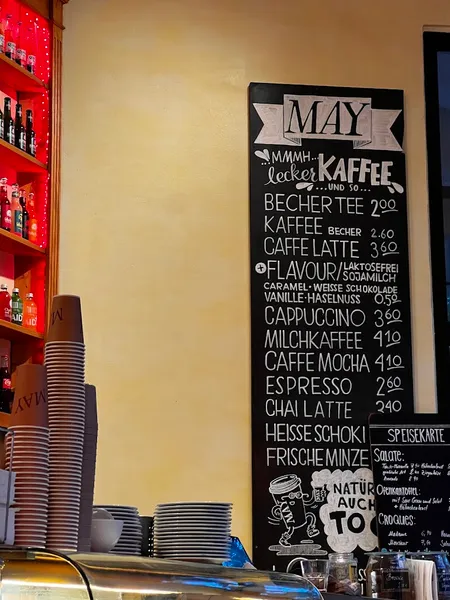 MAY
MMMH...
lecker KAFFEE
...UND SO...
BECHER TEE 2.00
KAFFEE BECHER 2.60
CAFFE LATTE 3.60
+ FLAVOUR/ LAKTOSEFREI
SOJAMILCH
CARAMEL · WEISSE SCHOKOLADE
VANILLE · HASELNUSS 0.50
CAPPUCCINO 3.60
MILCHKAFFEE 4.10
CAFFE MOCHA 4.10
ESPRESSO 2.60
CHAI LATTE 3.40
HEISSE SCHOKI
FRISCHE MINZE
NATÜR
AUCH
TO
SPEISEKARTE
SALATE:
OFENKARTOFFEL
CROQUES:
MAY
MAY